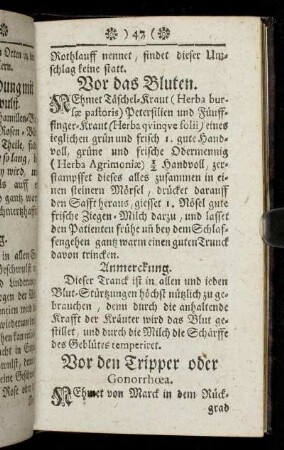 47
Rothlauff nennet, findet dieser Um-
schlag keine statt.
Vor das Bluten.
NEhmet Täschel-Kraut (Herba bur-
sæ pastoris) Petersilien und Fünff-
finger-Kraut (Herba qvinqve folii) eines
jeglichen grün und frisch 1. gute Hand-
voll, grüne und frische Odermennig
(Herba Agrimoniæ) Handvoll, zer-
stampffet dieses alles zusammen in ei-
nen steinern Mörsel, drücket darauff
den Safft heraus, giesset 1. Nösel gute
frische Ziegen-Milch darzu, und lasset
den Patienten frühe uñ bey dem Schlaf-
fengehen gantz warm einen guten Trunck
davon trincken.
Anmerckung.
Dieser Tranck ist in allen und jeden
Blut-Stürtzungen höchst nützlich zu ge-
brauchen, denn durch die anhaltende
Krafft der Kräuter wird das Blut ge-
stillet, und durch die Milch die Schärffe
des Geblütes temperiret.
Vor den Tripper oder
Gonorrhœa.
NEhmet von Marck in dem Rück-
grad